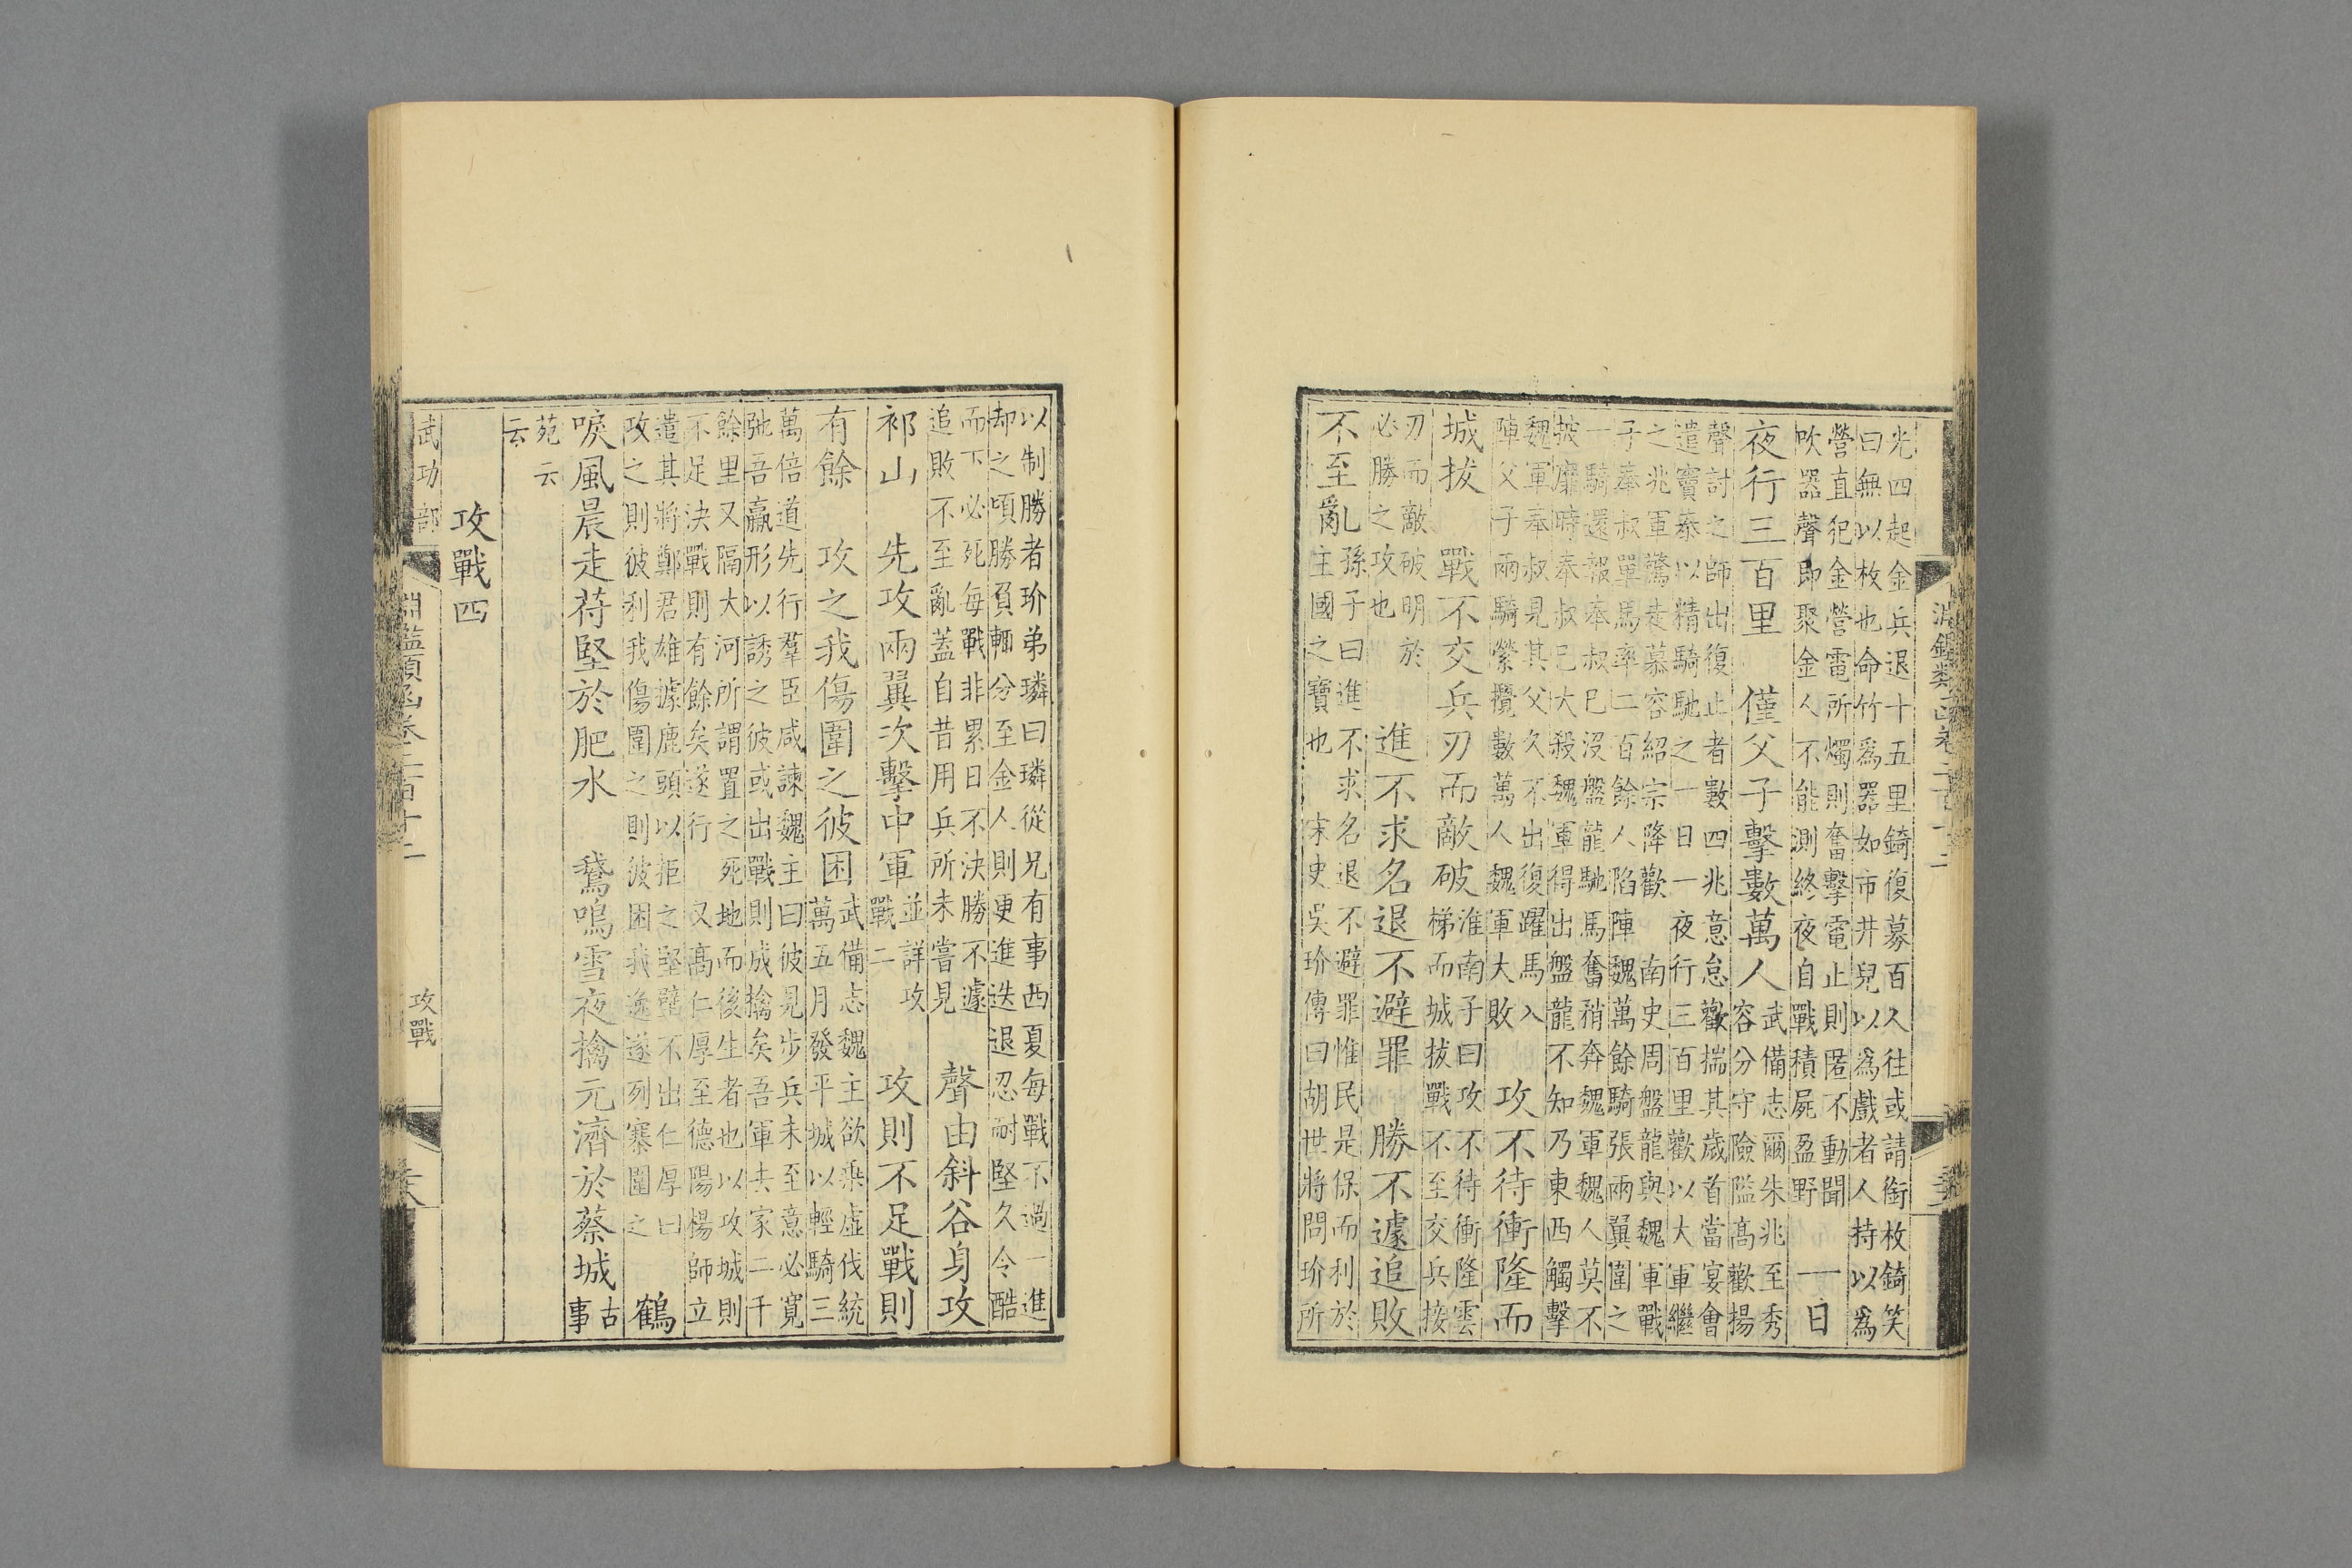 淵鑑類函卷二百十二
光四起金兵退十五里錡復募百人往或請銜枚錡笑
曰無以枚也命竹爲器如市井兒以爲戲者人持以爲
營直犯金營電所燭則奮擊電止則匿不動聞
吹器聲即聚金人不能測終夜自戰積屍盈野
一日
夜行三百里　僅父子擊數萬人
武備志爾朱兆至秀
容分守險隘高歡揚
聲討之師出復止者數四兆意怠歡揣其歲首當宴會
遣竇泰以精騎馳之一日一夜行三百里歡以大軍繼
之兆軍驚走慕容紹宗降歡　南史周盤龍與魏軍戰
子奉叔單馬率二百餘人陷陣魏萬餘騎張兩翼圍之
一騎還報奉叔已沒盤龍馳馬奮矟奔魏軍魏人莫不
披靡時奉叔已大殺魏軍得出盤龍不知乃東西觸擊
魏軍奉叔見其父久不出復躍馬入
陣父子兩騎縈攪數萬人魏軍大敗
攻不待衝隆而
城拔　戰不交兵刃而敵破
淮南子曰攻不待衝隆雲
梯而城拔戰不至交兵接
刃而敵破明於
必勝之攻也
進不求名退不避罪　勝不遽追敗
不至亂
孫子曰進不求名退不避罪惟民是保而利於
主國之寶也　宋史吳玠傳曰胡世將問玠所
以制勝者玠弟璘曰璘從兄有事西夏每戰不過一進
却之頃勝負輒分至金人則更進迭退忍耐堅久令酷
而下必死每戰非累日不決勝不遽
追敗不至亂蓋自昔用兵所未嘗見
聲由斜谷身攻
祁山　先攻兩翼次擊中軍
並詳攻
戰二
攻則不足戰則
有餘　攻之我傷圍之彼困
武備志魏主欲乘虛伐統
萬五月發平城以輕騎三
萬倍道先行羣臣咸諫魏主曰彼見步兵未至意必寬
弛吾羸形以誘之彼或出戰則成擒矣吾軍去家二千
餘里又隔大河所謂置之死地而後生者也以攻城則
不足決戰則有餘矣遂行　又高仁厚至德陽楊師立
遣其將鄭君雄據鹿頭以拒之堅壁不出仁厚曰
攻之則彼利我傷圍之則彼困我逸遂列寨圍之
鶴
唳風晨走苻堅於肥水　鵞鳴雪夜擒元濟於蔡城
古
事
苑云
云
攻戰四
武功部
淵鑑類函卷二百十二
攻戰